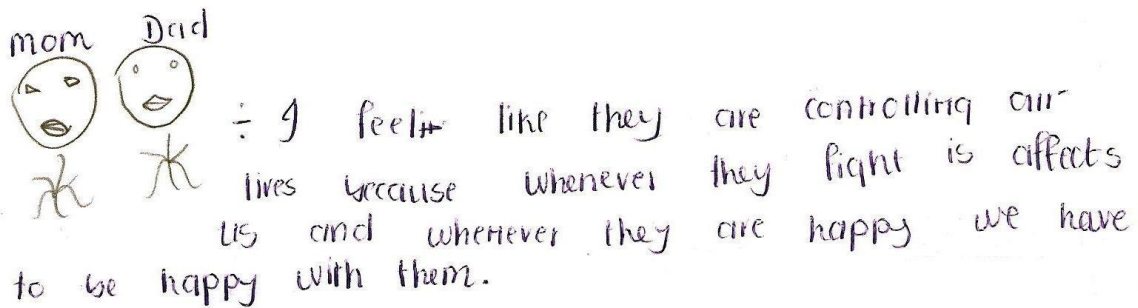 mom Dad
÷ I feel like they are controlling our
lives because whenever they fight is affects
us and whenever they are happy we have
to be happy with them.